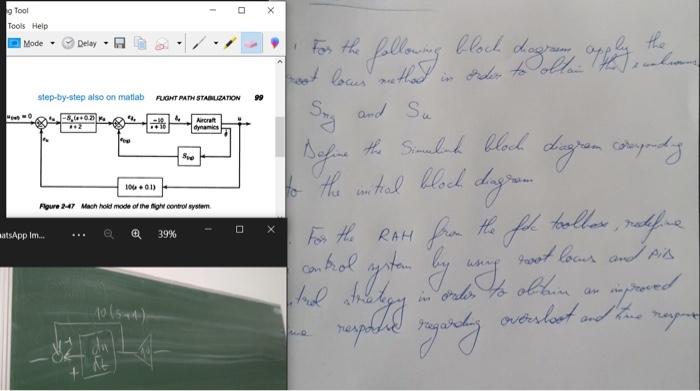 g Tool
Tools Help
Mode Delay
step-by-step also on matlab FLIGHT PATH STABILIZATION 99
-10
s + 10
Aircraft
dynamics
10(s + 0.1)
Figure 2-47 Mach hold mode of the flight control system.
atsApp Im... ... 39%
10(s+1)
For the following block diagram apply the
root locus method in order to obtain the
and Su
Define the Simulink block diagram corresponding
to the initial block diagram
For the RAH from the fdc toolbox, redefine
control system by using root locus and PID
strategy in order to obtain an improved
response regarding overshoot and time response